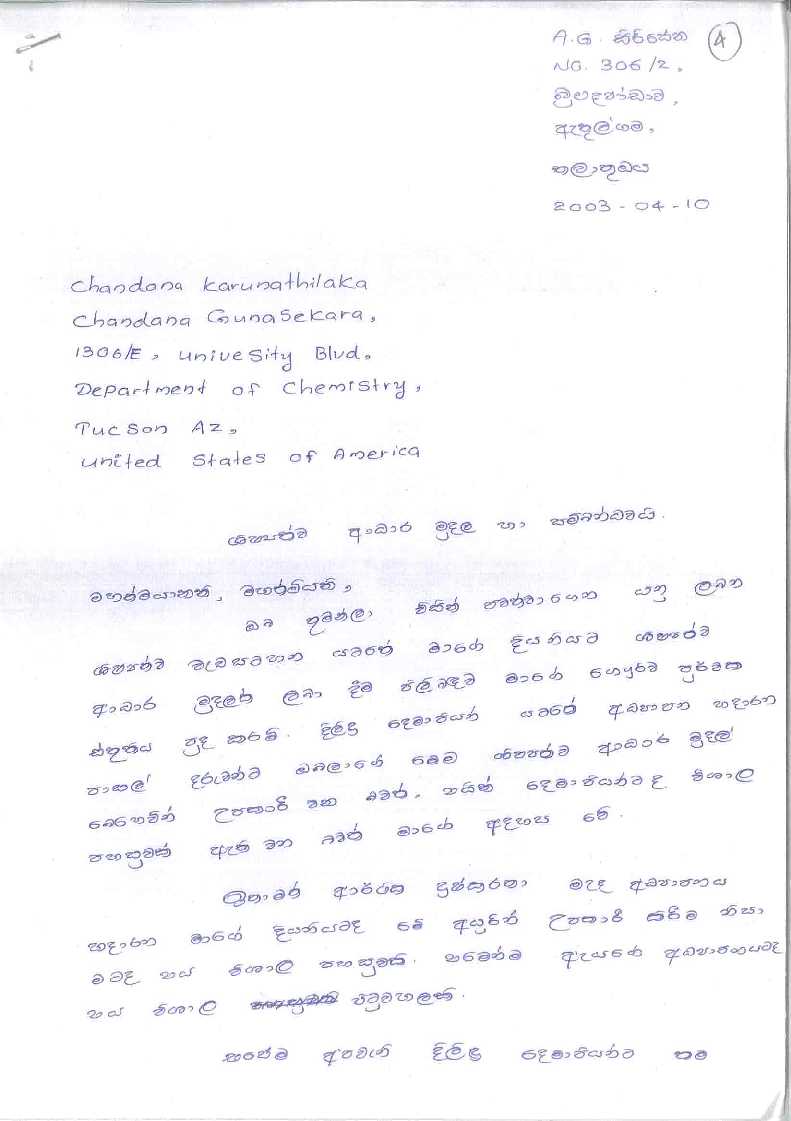 A.G. සිරිසේන
4
NO. 306/2,
ඇතුල්ගම,
2003-04-10
Chandana Karunathilaka
Chandana Gunasekara,
1306/E, univesity Blvd.
Department of Chemistry,
Tucson AZ,
united States of America
ශිෂ්‍යත්ව ආධාර මුදල හා සම්බන්ධවයි.
මහත්මයාණනි, මහත්මියනි,
ඔබ තුමන්ලා විසින් පවත්වාගෙන යනු ලබන
ශිෂ්‍යත්ව වැඩසටහන යටතේ මාගේ දියණියට ශිෂ්‍යත්ව
ආධාර මුදලක් ලබා දීම පිලිබඳව මාගේ ගෞරව පූර්වක
ස්තූතිය පුද කරමි. දිලිඳු දෙමාපියන් යටතේ අධ්‍යාපන හදාරන
පාසල් දරුවන්ට ඔබලාගේ මෙම ශිෂ්‍යත්ව ආධාර මුදල්
බෙහෙවින් උපකාරී වන බවත්, එයින් දෙමාපියන්ටද විශාල
පහසුවක් ඇති වන බවත් මාගේ අදහස වේ.
ඉතාමත් ආර්ථික දුෂ්කරතා මැද අධ්‍යාපනය
හදාරන මාගේ දියණියටද මේ අයුරින් උපකාරී කිරීම නිසා
මටද එය විශාල පහසුවකි. එමෙන්ම ඇයගේ අධ්‍යාපනයටද
එය විශාල පිටුවහලකි.
අපවැනි දිලිඳු දෙමාපියන්ට තම